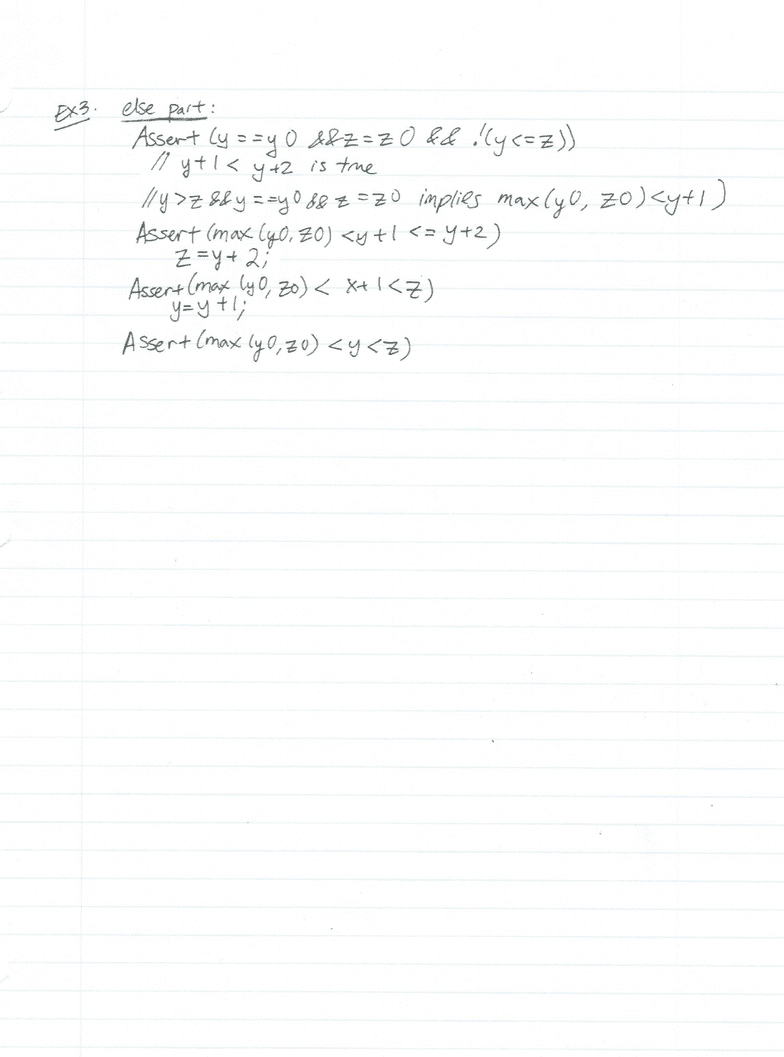 Ex3. else part:
Assert (y==y0 &&z=z0 && !(y<=z))
// y+1< y+2 is true
//y>z &&y==y0&& z=z0 implies max(y0, z0)<y+1)
Assert (max(y0,z0) <y+1 <= y+2)
z=y+2;
Assert(max(y0, z0) < x+1<z)
y=y+1;
Assert(max(y0,z0) <y<z)